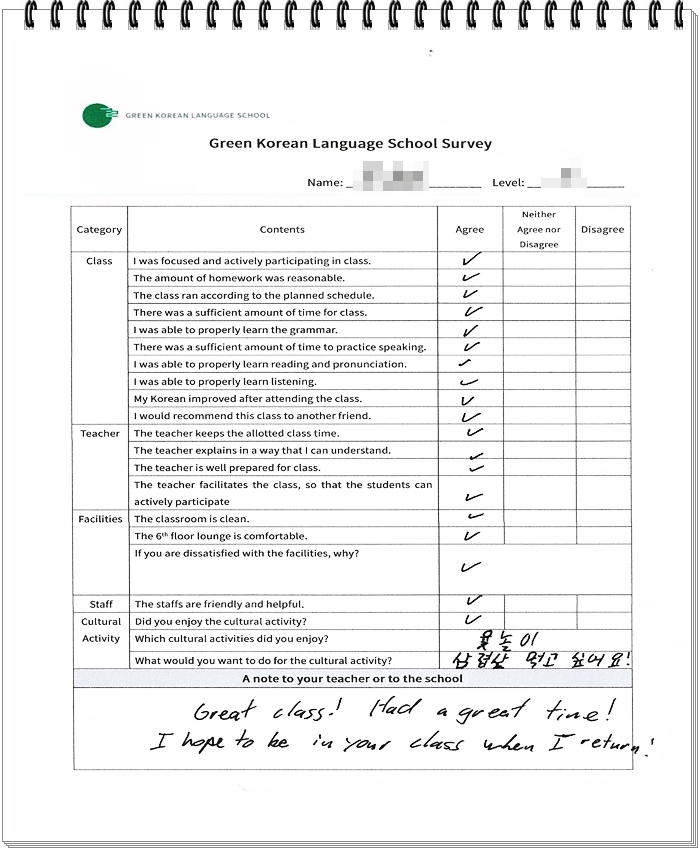 GREEN KOREAN LANGUAGE SCHOOL
Green Korean Language School Survey
Name: Level:
Category Contents Agree Neither Agree nor Disagree Disagree
Class I was focused and actively participating in class. ✓
The amount of homework was reasonable. ✓
The class ran according to the planned schedule. ✓
There was a sufficient amount of time for class. ✓
I was able to properly learn the grammar. ✓
There was a sufficient amount of time to practice speaking. ✓
I was able to properly learn reading and pronunciation. ✓
I was able to properly learn listening. ✓
My Korean improved after attending the class. ✓
I would recommend this class to another friend. ✓
Teacher The teacher keeps the allotted class time. ✓
The teacher explains in a way that I can understand. ✓
The teacher is well prepared for class. ✓
The teacher facilitates the class, so that the students can
actively participate ✓
Facilities The classroom is clean. ✓
The 6th floor lounge is comfortable. ✓
If you are dissatisfied with the facilities, why? ✓
Staff The staffs are friendly and helpful. ✓
Cultural Did you enjoy the cultural activity? ✓
Activity Which cultural activities did you enjoy? 윷놀이
What would you want to do for the cultural activity? 삼겹살 먹고 싶어요!
A note to your teacher or to the school
Great class! Had a great time!
I hope to be in your class when I return!